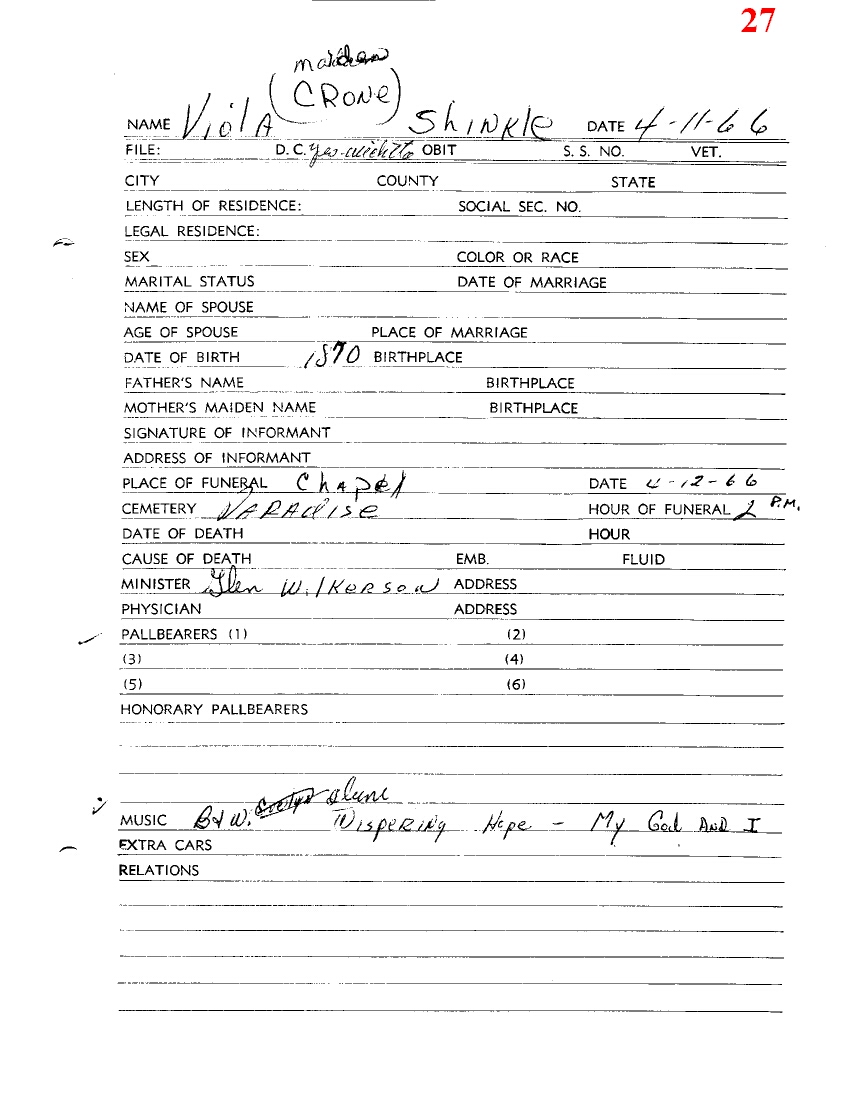 27
maiden
(CRONE)
NAME Viola Shinkle DATE 4-11-66
FILE: D.C. yes- OBIT S. S. NO. VET.
CITY COUNTY STATE
LENGTH OF RESIDENCE: SOCIAL SEC. NO.
LEGAL RESIDENCE:
SEX COLOR OR RACE
MARITAL STATUS DATE OF MARRIAGE
NAME OF SPOUSE
AGE OF SPOUSE PLACE OF MARRIAGE
DATE OF BIRTH 1870 BIRTHPLACE
FATHER'S NAME BIRTHPLACE
MOTHER'S MAIDEN NAME BIRTHPLACE
SIGNATURE OF INFORMANT
ADDRESS OF INFORMANT
PLACE OF FUNERAL Chapel DATE 4-12-66
CEMETERY PARAdise HOUR OF FUNERAL 2 P.M.
DATE OF DEATH HOUR
CAUSE OF DEATH EMB. FLUID
MINISTER Glen Wilkerson ADDRESS
PHYSICIAN ADDRESS
PALLBEARERS (1) (2)
(3) (4)
(5) (6)
HONORARY PALLBEARERS
MUSIC B+W. alune Wispering Hope - My God And I
EXTRA CARS
RELATIONS